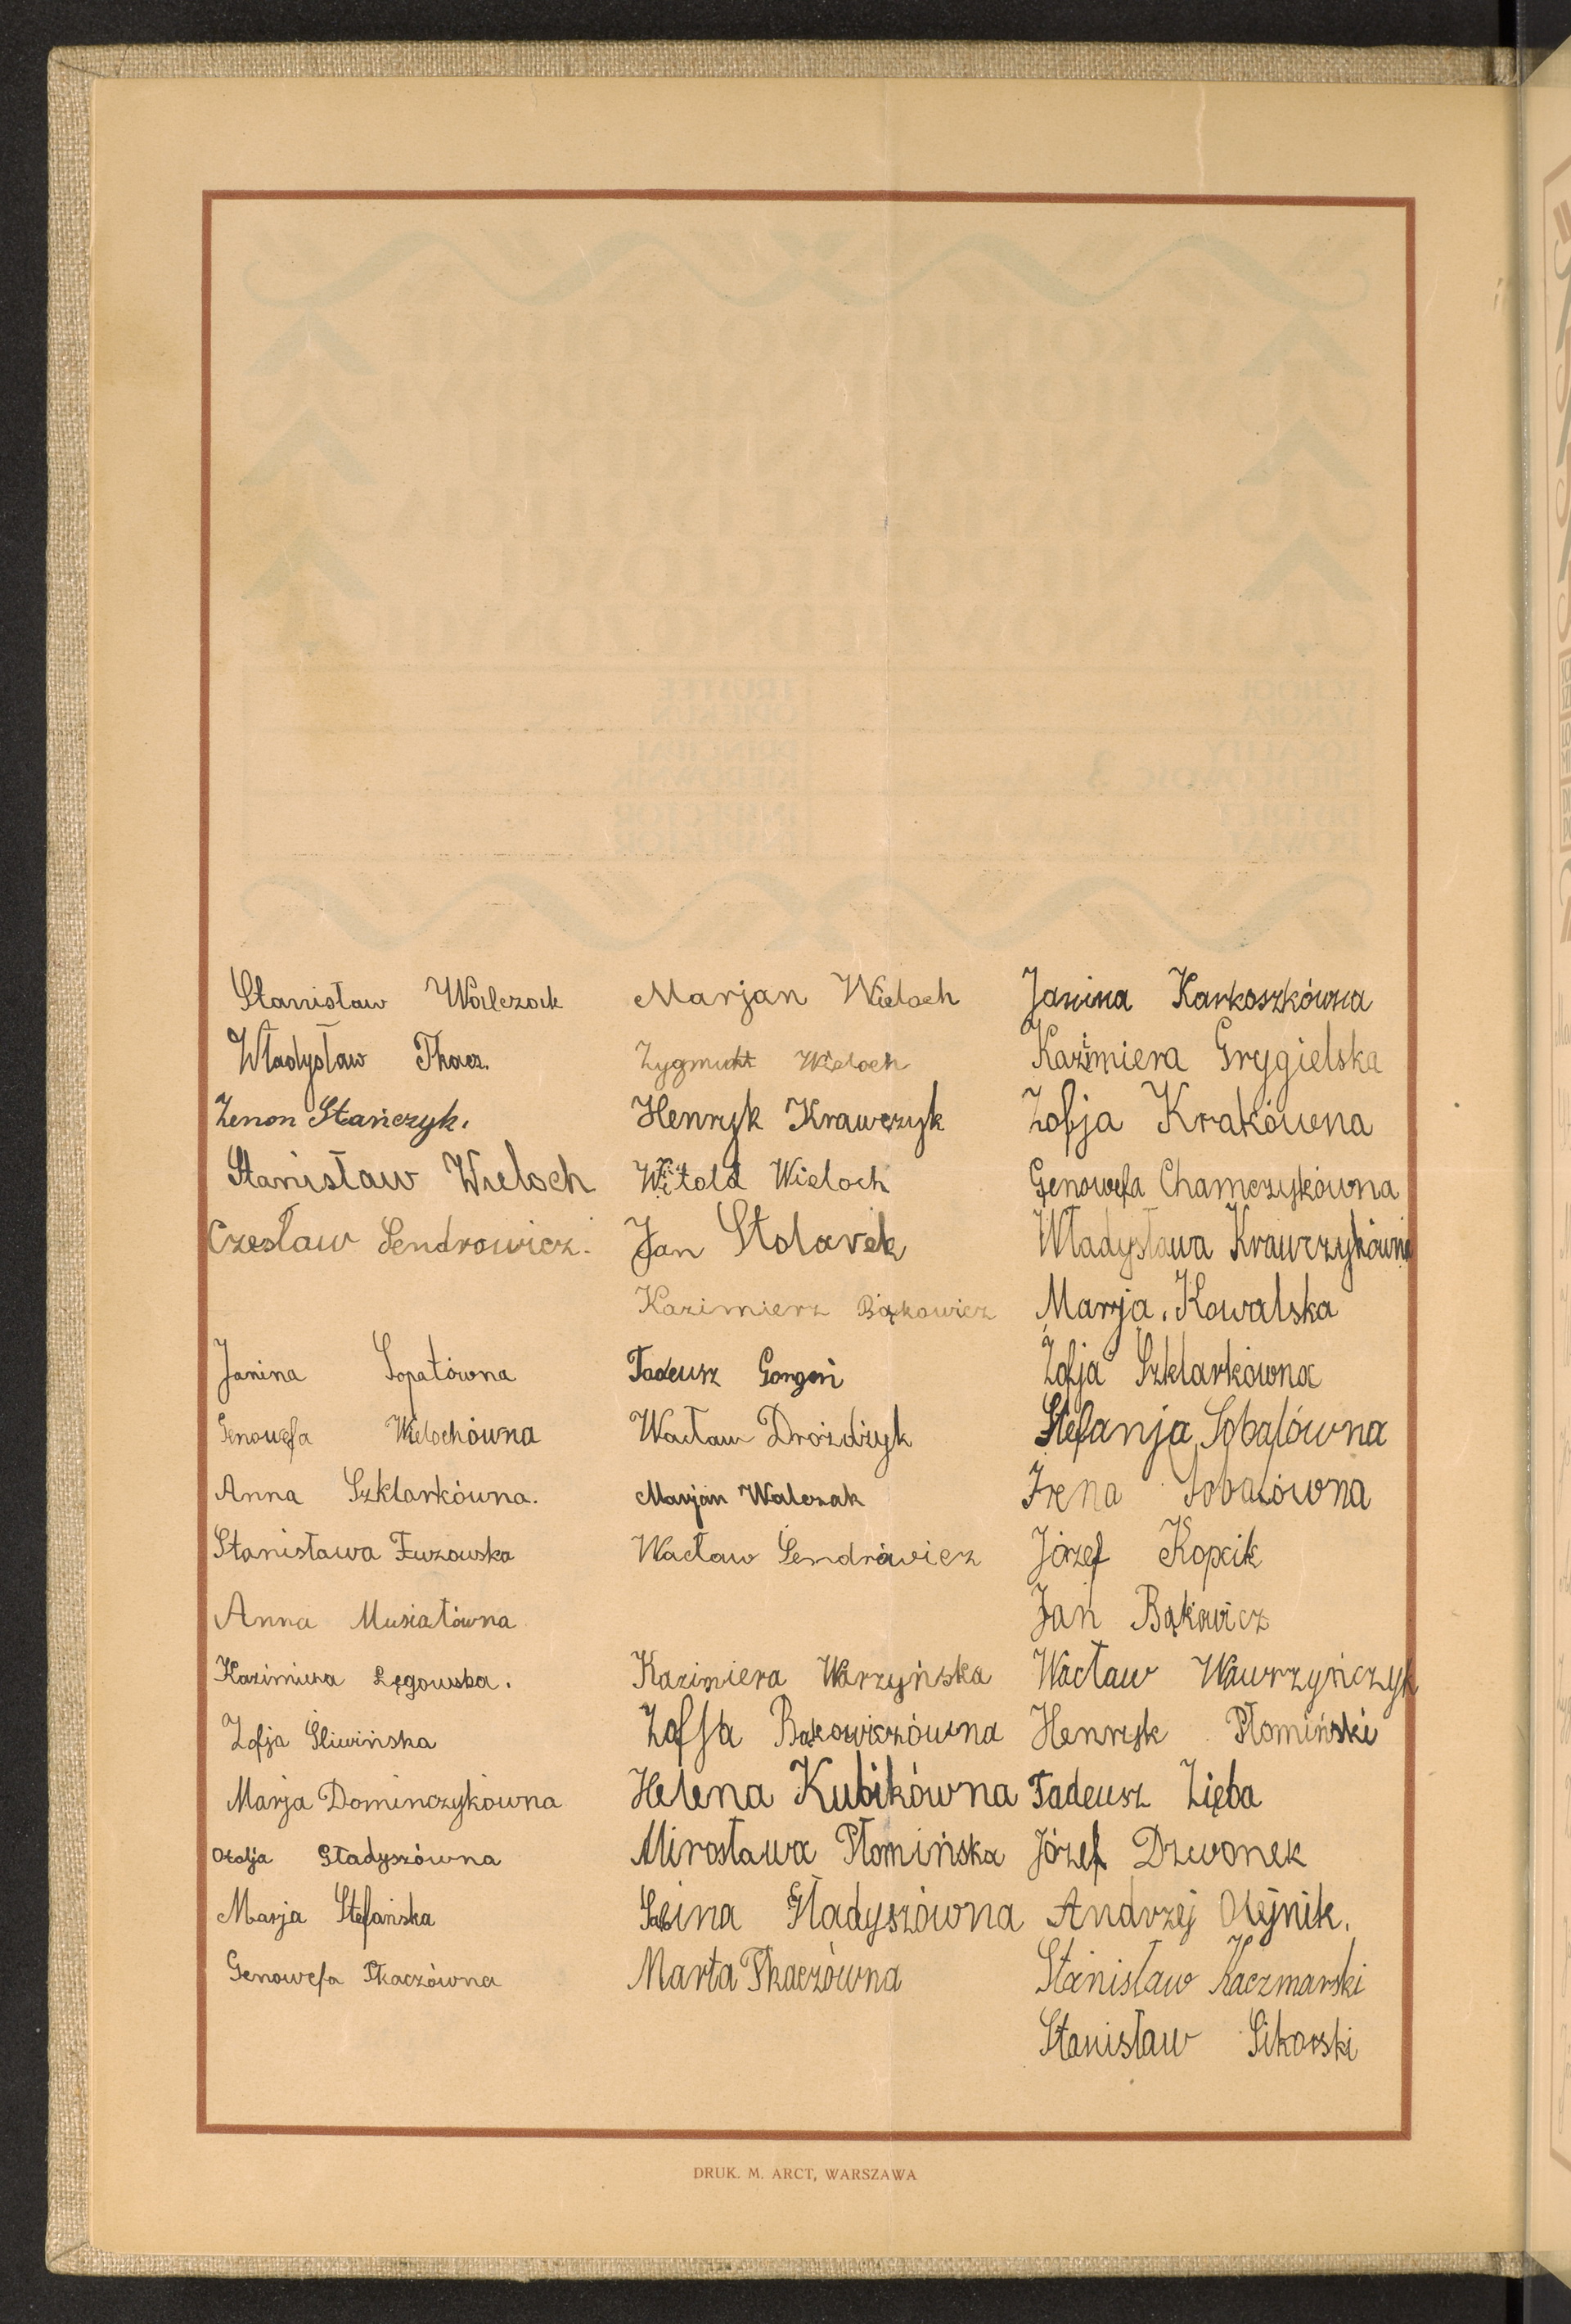 Stanisław Walczak
Władysław Tkacz.
Zenon Stańczyk.
Stanisław Wieloch
Czesław Sendrowicz.
Janina Łopatówna
Genowefa Wielochówna
Anna Szklarkówna.
Stanisława Fuzowska
Anna Musiałówna
Kazimiera Łęgowska.
Zofja Śliwińska
Marja Dominczykówna
Otolja Gładyszówna
Marja Stefańska
Genowefa Tkaczówna
Marjan Wieloch
Zygmunt Wieloch
Henryk Krawczyk
Witold Wieloch
Jan Stolarek
Kazimierz Bąkowicz
Tadeusz Gorgoń
Wacław Drożdżyk
Marjan Walczak
Wacław Sendrowicz
Kazimiera Warzyńska
Zofja Bąkowiczówna
Helena Kubikówna
Mirosława Płomińska
Sabina Gładyszówna
Marta Tkaczówna
Janina Karkoszkówna
Kazimiera Grygielska
Zofja Krakówna
Genowefa Chamczykówna
Władysława Krawczykówna
Marja. Kowalska
Zofja Szklarkówna
Stefanja Sobalówna
Irena Sobalówna
Józef Kopcik
Jan Bąkowicz
Wacław Wawrzyńczyk
Henryk Płomiński
Tadeusz Zięba
Józef Dzwonek
Andrzej Olejnik.
Stanisław Kaczmarski
Stanisław Sikorski
DRUK. M. ARCT, WARSZAWA